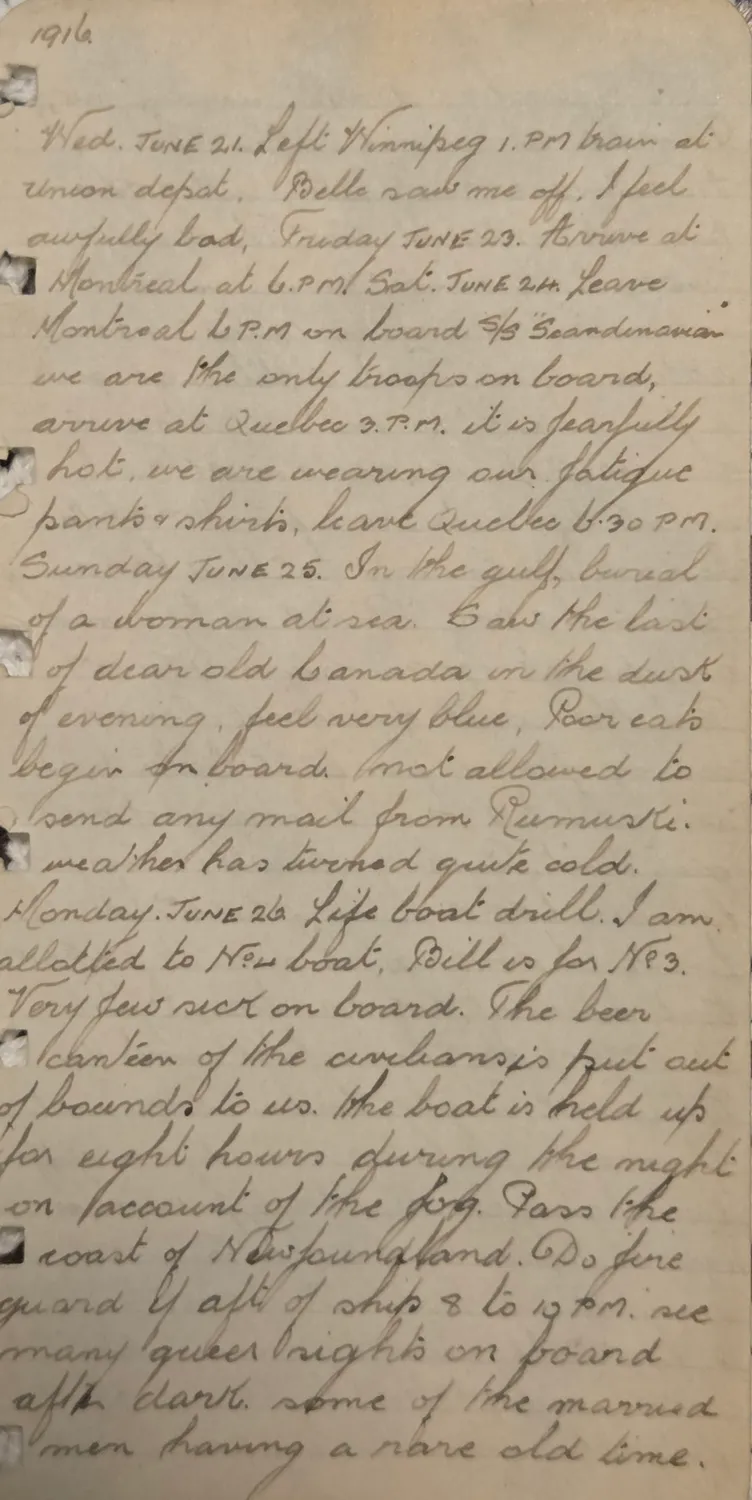 1916.
Wed. JUNE 21. Left Winnipeg 1. PM train at
union depot. Belle saw me off. I feel
awfully bad, Friday JUNE 23. Arrive at
Montreal at 6. P.M. Sat. JUNE 24. Leave
Montreal 6 P.M on board S/S "Scandinavian"
we are the only troops on board,
arrive at Quebec 3. P.M. it is fearfully
hot. we are wearing our fatigue
pants & shirts, leave Quebec 6.30 PM.
Sunday JUNE 25. In the gulf, burial
of a woman at sea. Saw the last
of dear old Canada in the dusk
of evening, feel very blue, Poor eats
begin on board. not allowed to
send any mail from Rumuski.
weather has turned quite cold.
Monday. JUNE 26. Life boat drill. I am
allotted to No 4 boat, Bill is for No 3.
Very few sick on board. The beer
canteen of the civilians is put out
of bounds to us. the boat is held up
for eight hours during the night
on account of the fog. Pass the
coast of Newfoundland. Do fire
guard aft of ship 8 to 10 PM. see
many queer sights on board
after dark. some of the married
men having a rare old time.